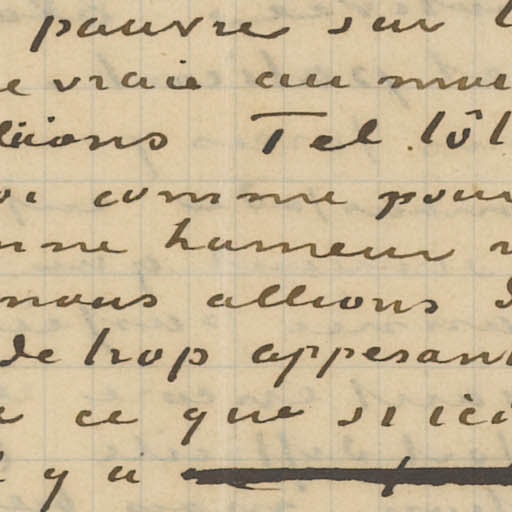 pauvre sur
vraie au mu
étions Tel. tôt
comme pour
humeur
nous allions
de trop appesant
ce que si ici
y a